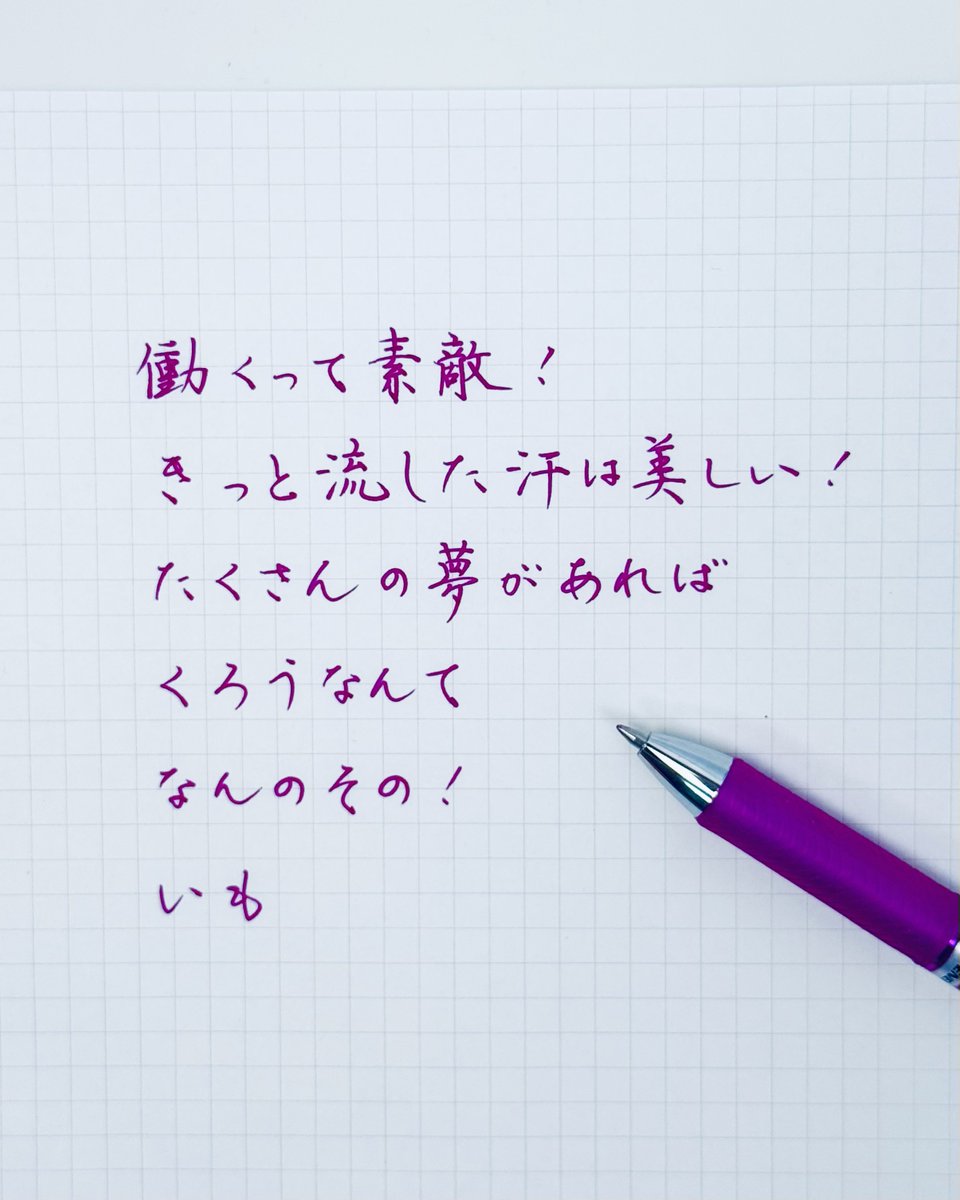 働くって素敵!
きっと流した汗は美しい!
たくさんの夢があれば
くろうなんて
なんのその!
いも